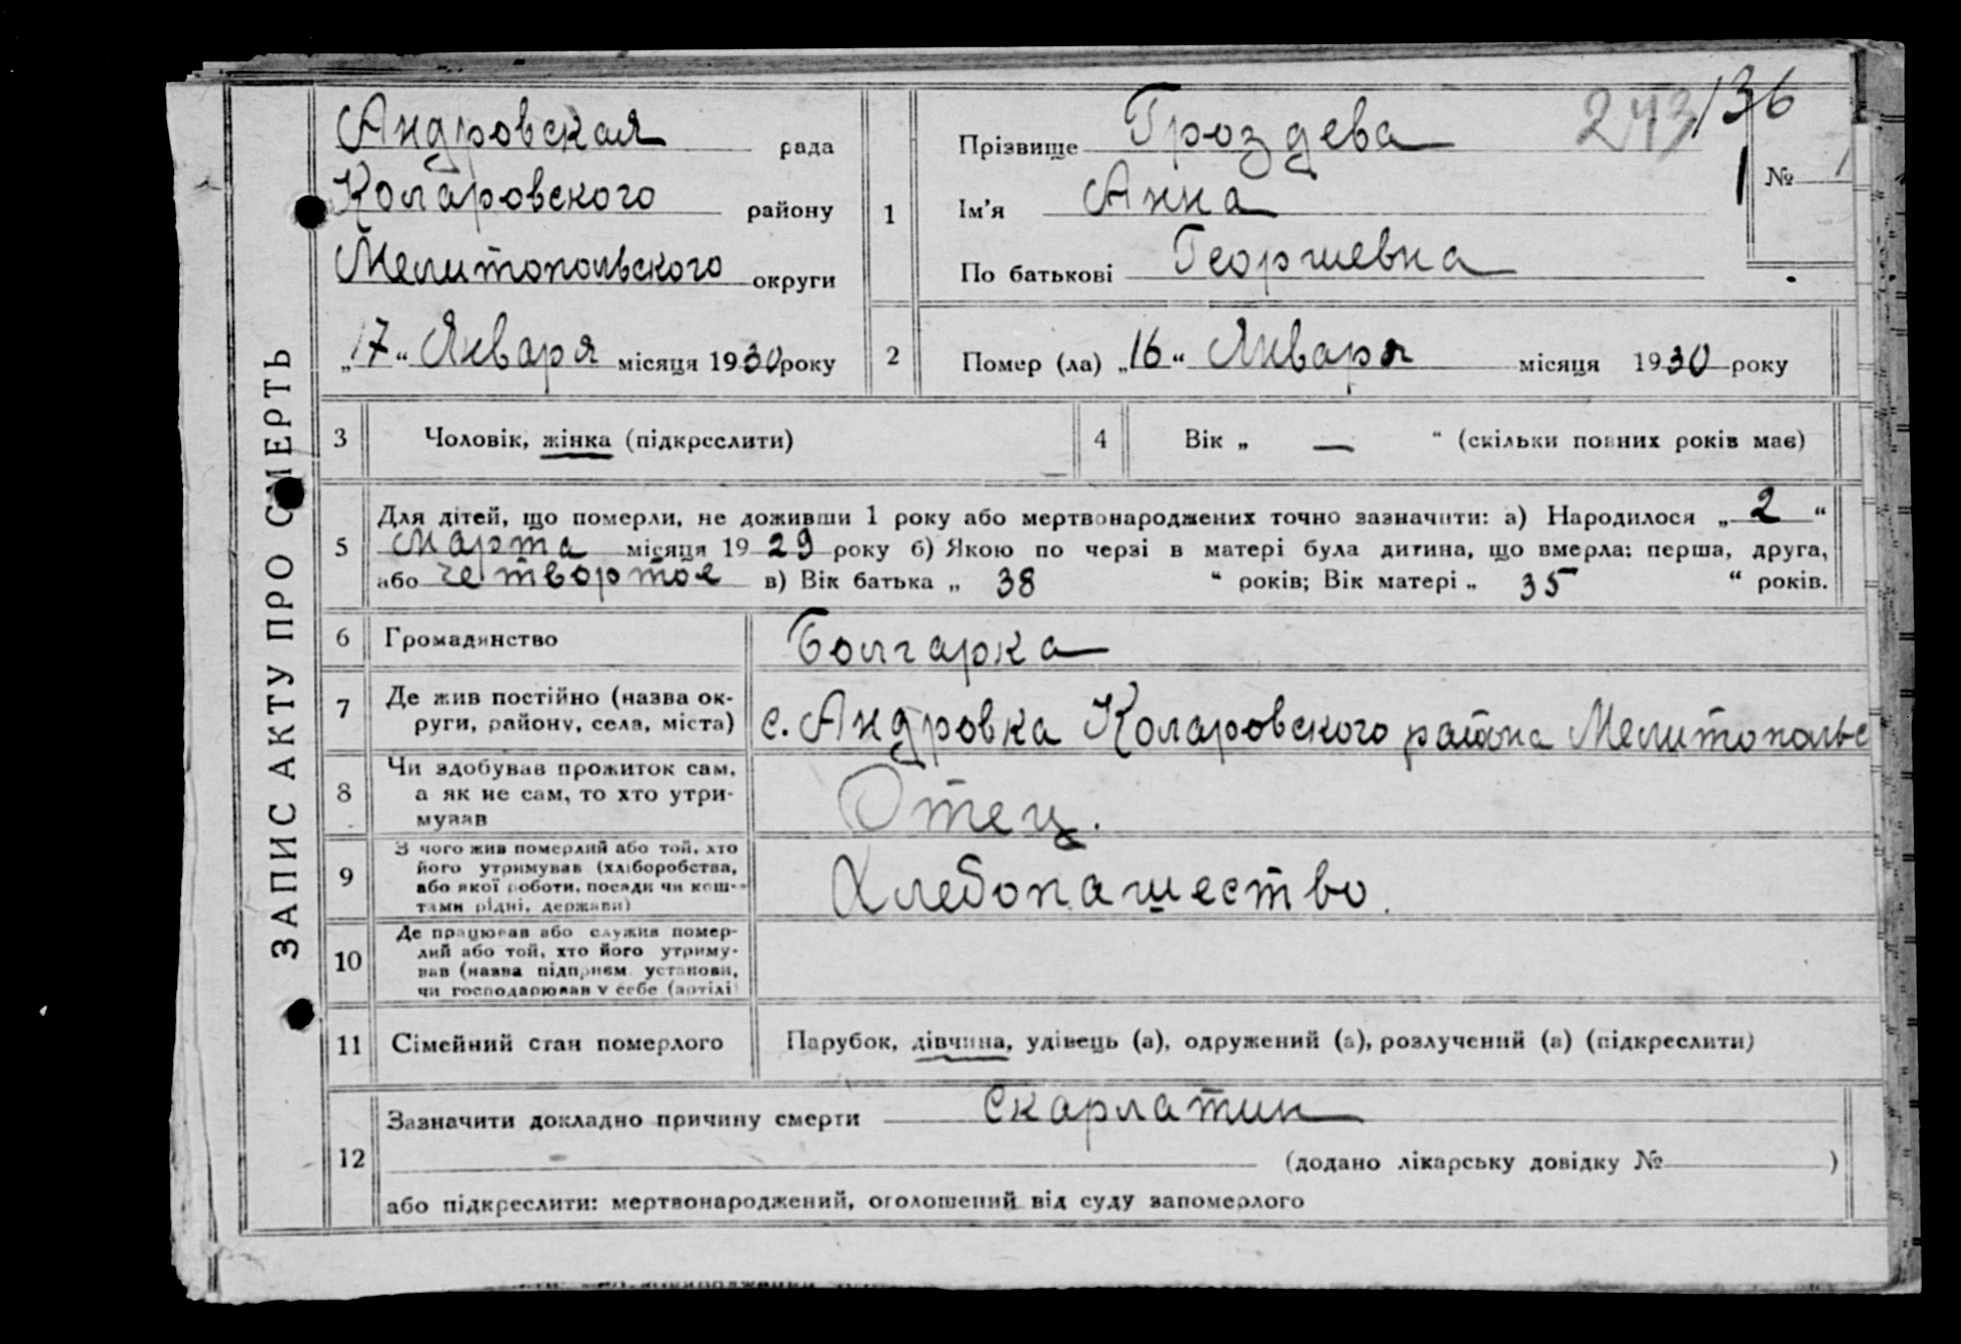 ЗАПИС АКТУ ПРО СМЕРТЬ
Андровская рада
Коларовского району
Мелитопольского округи
„17“ Января місяця 1930 року
243 136
1 Прізвище Гроздева
№ 1
Ім'я Анна
По батькові Георгиевна
2 Помер (ла) „16“ Января місяця 1930 року
3 Чоловік, жінка (підкреслити)
4 Вік „ — “ (скільки повних років має)
5 Для дітей, що померли, не доживши 1 року або мертвонароджених точно зазначити: а) Народилося „2“
Марта місяця 1929 року б) Якою по черзі в матері була дитина, що вмерла: перша, друга,
або четвортое в) Вік батька „ 38 “ років; Вік матері „ 35 “ років.
6 Громадянство Болгарка
7 Де жив постійно (назва ок-
руги, району, села, міста) с. Андровка Коларовского района Мелитопольс
8 Чи здобував прожиток сам,
а як не сам, то хто утри-
мував Отец.
9 З чого жив померлий або той, хто
його утримував (хліборобства,
або якої роботи, посади чи кош-
тами рідні, держави) Хлебопашество.
10 Де працював або служив помер-
лий або той, хто його утриму-
вав (назва підприєм. установи,
чи господарював у себе (артілі
11 Сімейний стан померлого Парубок, дівчина, удівець (а), одружений (а), розлучений (а) (підкреслити)
12 Зазначити докладно причину смерти Скарлатин
(додано лікарську довідку № )
або підкреслити: мертвонароджений, оголошений від суду запомерлого